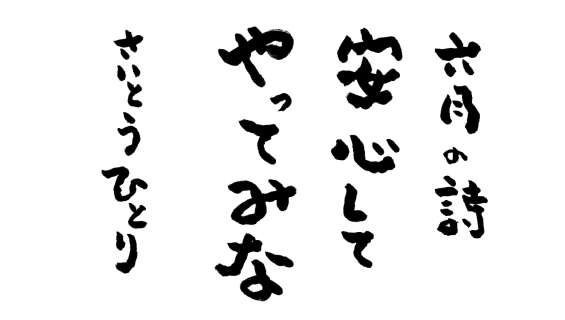 六月の詩
安心して
やってみな
さいとうひとり